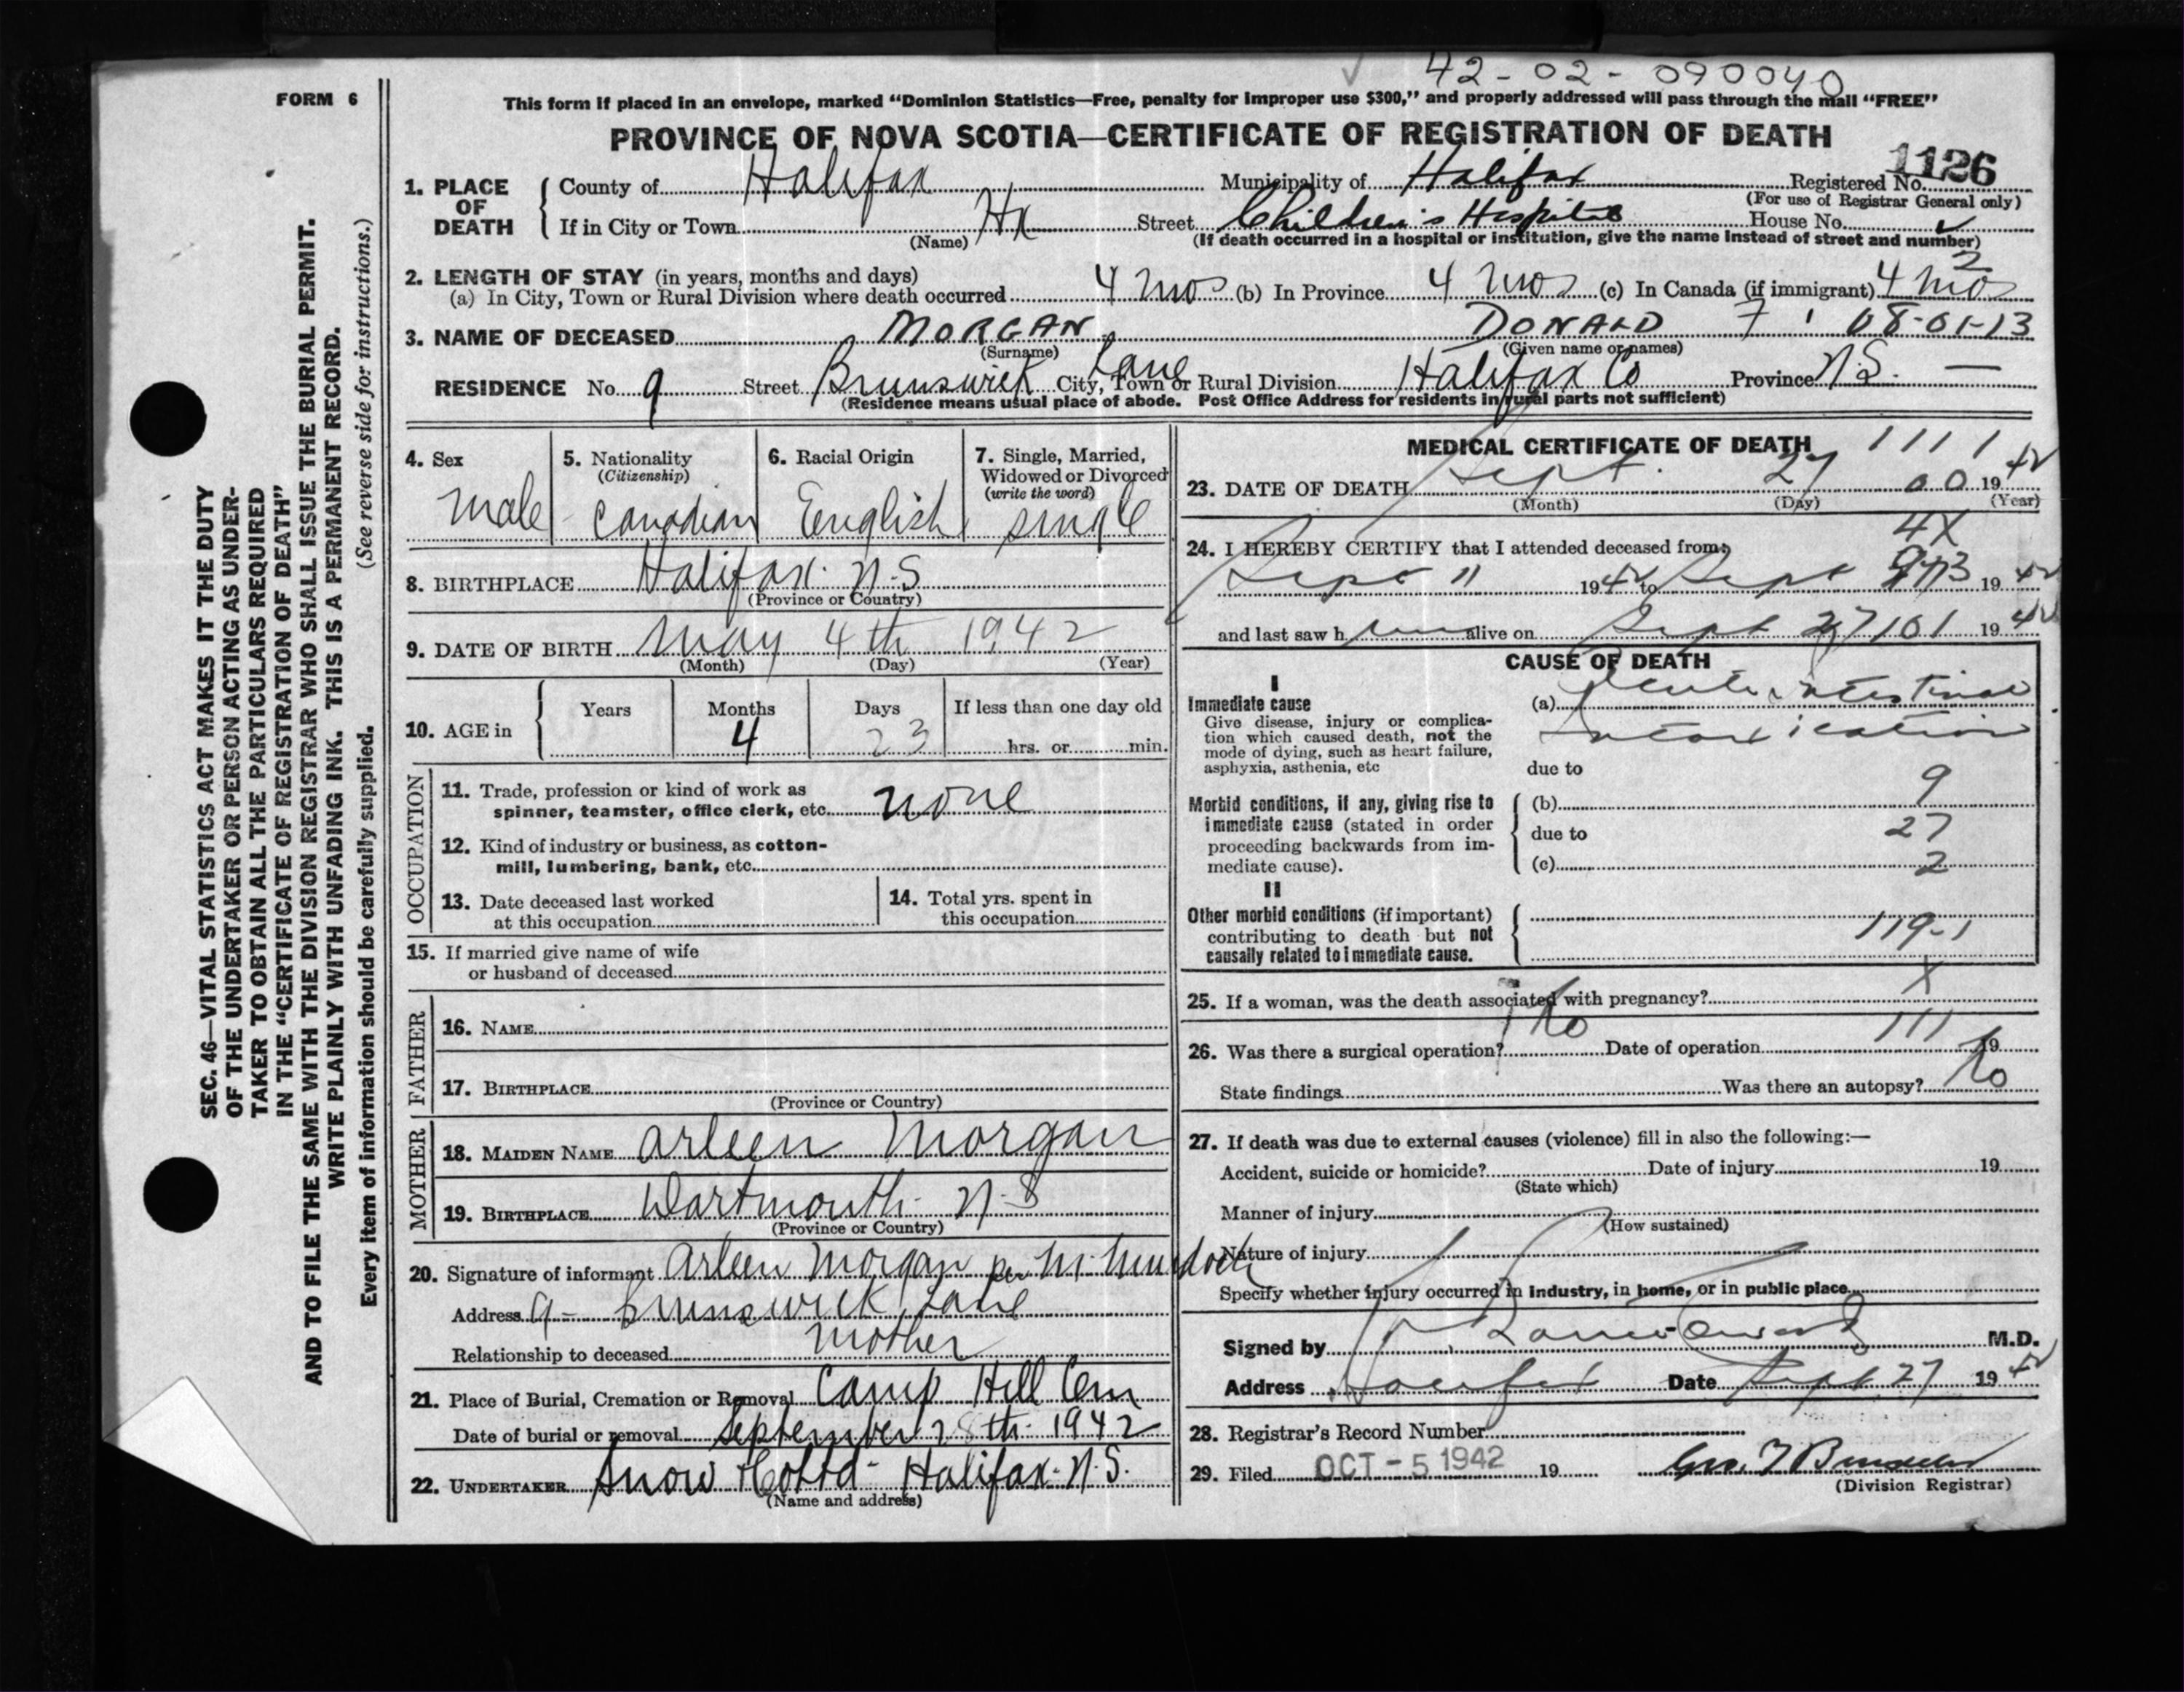 42-02-090040
FORM 6
This form if placed in an envelope, marked "Dominion Statistics—Free, penalty for improper use $300," and properly addressed will pass through the mail "FREE"
PROVINCE OF NOVA SCOTIA—CERTIFICATE OF REGISTRATION OF DEATH
1126
1. PLACE OF DEATH County of Halifax Municipality of Halifax Registered No.
(For use of Registrar General only)
If in City or Town Hx Street Children's Hospital House No. ✓
(Name) (If death occurred in a hospital or institution, give the name instead of street and number)
2. LENGTH OF STAY (in years, months and days) 2
(a) In City, Town or Rural Division where death occurred 4 mos (b) In Province 4 mos (c) In Canada (if immigrant) 4 mos
3. NAME OF DECEASED MORGAN DONALD 7 1 08-01-13
(Surname) (Given name or names)
RESIDENCE No. 9 Street Brunswick Lane City, Town or Rural Division Halifax Co Province N.S. —
(Residence means usual place of abode. Post Office Address for residents in rural parts not sufficient)
4. Sex 5. Nationality 6. Racial Origin 7. Single, Married,
(Citizenship) Widowed or Divorced
(write the word)
male Canadian English single
8. BIRTHPLACE Halifax N.S
(Province or Country)
9. DATE OF BIRTH May 4th 1942
(Month) (Day) (Year)
10. AGE in Years Months Days If less than one day old
4 23 hrs. or min.
OCCUPATION
11. Trade, profession or kind of work as
spinner, teamster, office clerk, etc. none
12. Kind of industry or business, as cotton-
mill, lumbering, bank, etc.
13. Date deceased last worked 14. Total yrs. spent in
at this occupation this occupation
15. If married give name of wife
or husband of deceased
FATHER
16. NAME
17. BIRTHPLACE
(Province or Country)
MOTHER
18. MAIDEN NAME Arleen Morgan
19. BIRTHPLACE Dartmouth N.S
(Province or Country)
20. Signature of informant Arleen Morgan per M Murdoch
Address 9 - Brunswick Lane
Relationship to deceased mother
21. Place of Burial, Cremation or Removal Camp Hill Cem
Date of burial or removal September 28th 1942
22. UNDERTAKER Snow & Co Ltd - Halifax N.S.
(Name and address)
MEDICAL CERTIFICATE OF DEATH 1111
23. DATE OF DEATH Sept. 27 00 1942
(Month) (Day) (Year)
4X
24. I HEREBY CERTIFY that I attended deceased from:
Sept 11 1942 to Sept 1942
and last saw h im alive on Sept 27 101 1942
CAUSE OF DEATH
I
Immediate cause (a) Acute intestinal
Give disease, injury or complica-
tion which caused death, not the intoxication
mode of dying, such as heart failure,
asphyxia, asthenia, etc due to
9
Morbid conditions, if any, giving rise to (b)
immediate cause (stated in order due to 27
proceeding backwards from im-
mediate cause). (c) 2
II
Other morbid conditions (if important)
contributing to death but not 119-1
causally related to immediate cause.
25. If a woman, was the death associated with pregnancy? X
26. Was there a surgical operation? No Date of operation 111 19
State findings Was there an autopsy? No
27. If death was due to external causes (violence) fill in also the following:—
Accident, suicide or homicide? Date of injury 19
(State which)
Manner of injury
(How sustained)
Nature of injury
Specify whether injury occurred in industry, in home, or in public place
Signed by M.D.
Address Halifax Date Sept 27 1942
28. Registrar's Record Number
29. Filed OCT - 5 1942 19
(Division Registrar)
SEC. 46—VITAL STATISTICS ACT MAKES IT THE DUTY
OF THE UNDERTAKER OR PERSON ACTING AS UNDER-
TAKER TO OBTAIN ALL THE PARTICULARS REQUIRED
IN THE "CERTIFICATE OF REGISTRATION OF DEATH"
AND TO FILE THE SAME WITH THE DIVISION REGISTRAR WHO SHALL ISSUE THE BURIAL PERMIT.
WRITE PLAINLY WITH UNFADING INK. THIS IS A PERMANENT RECORD.
Every item of information should be carefully supplied. (See reverse side for instructions.)